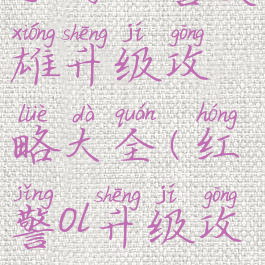 xióng shēng jí gōng
雄升级攻
lüè dà quán hóng
略大全(红
jǐng shēng jí gōng
警ol升级攻